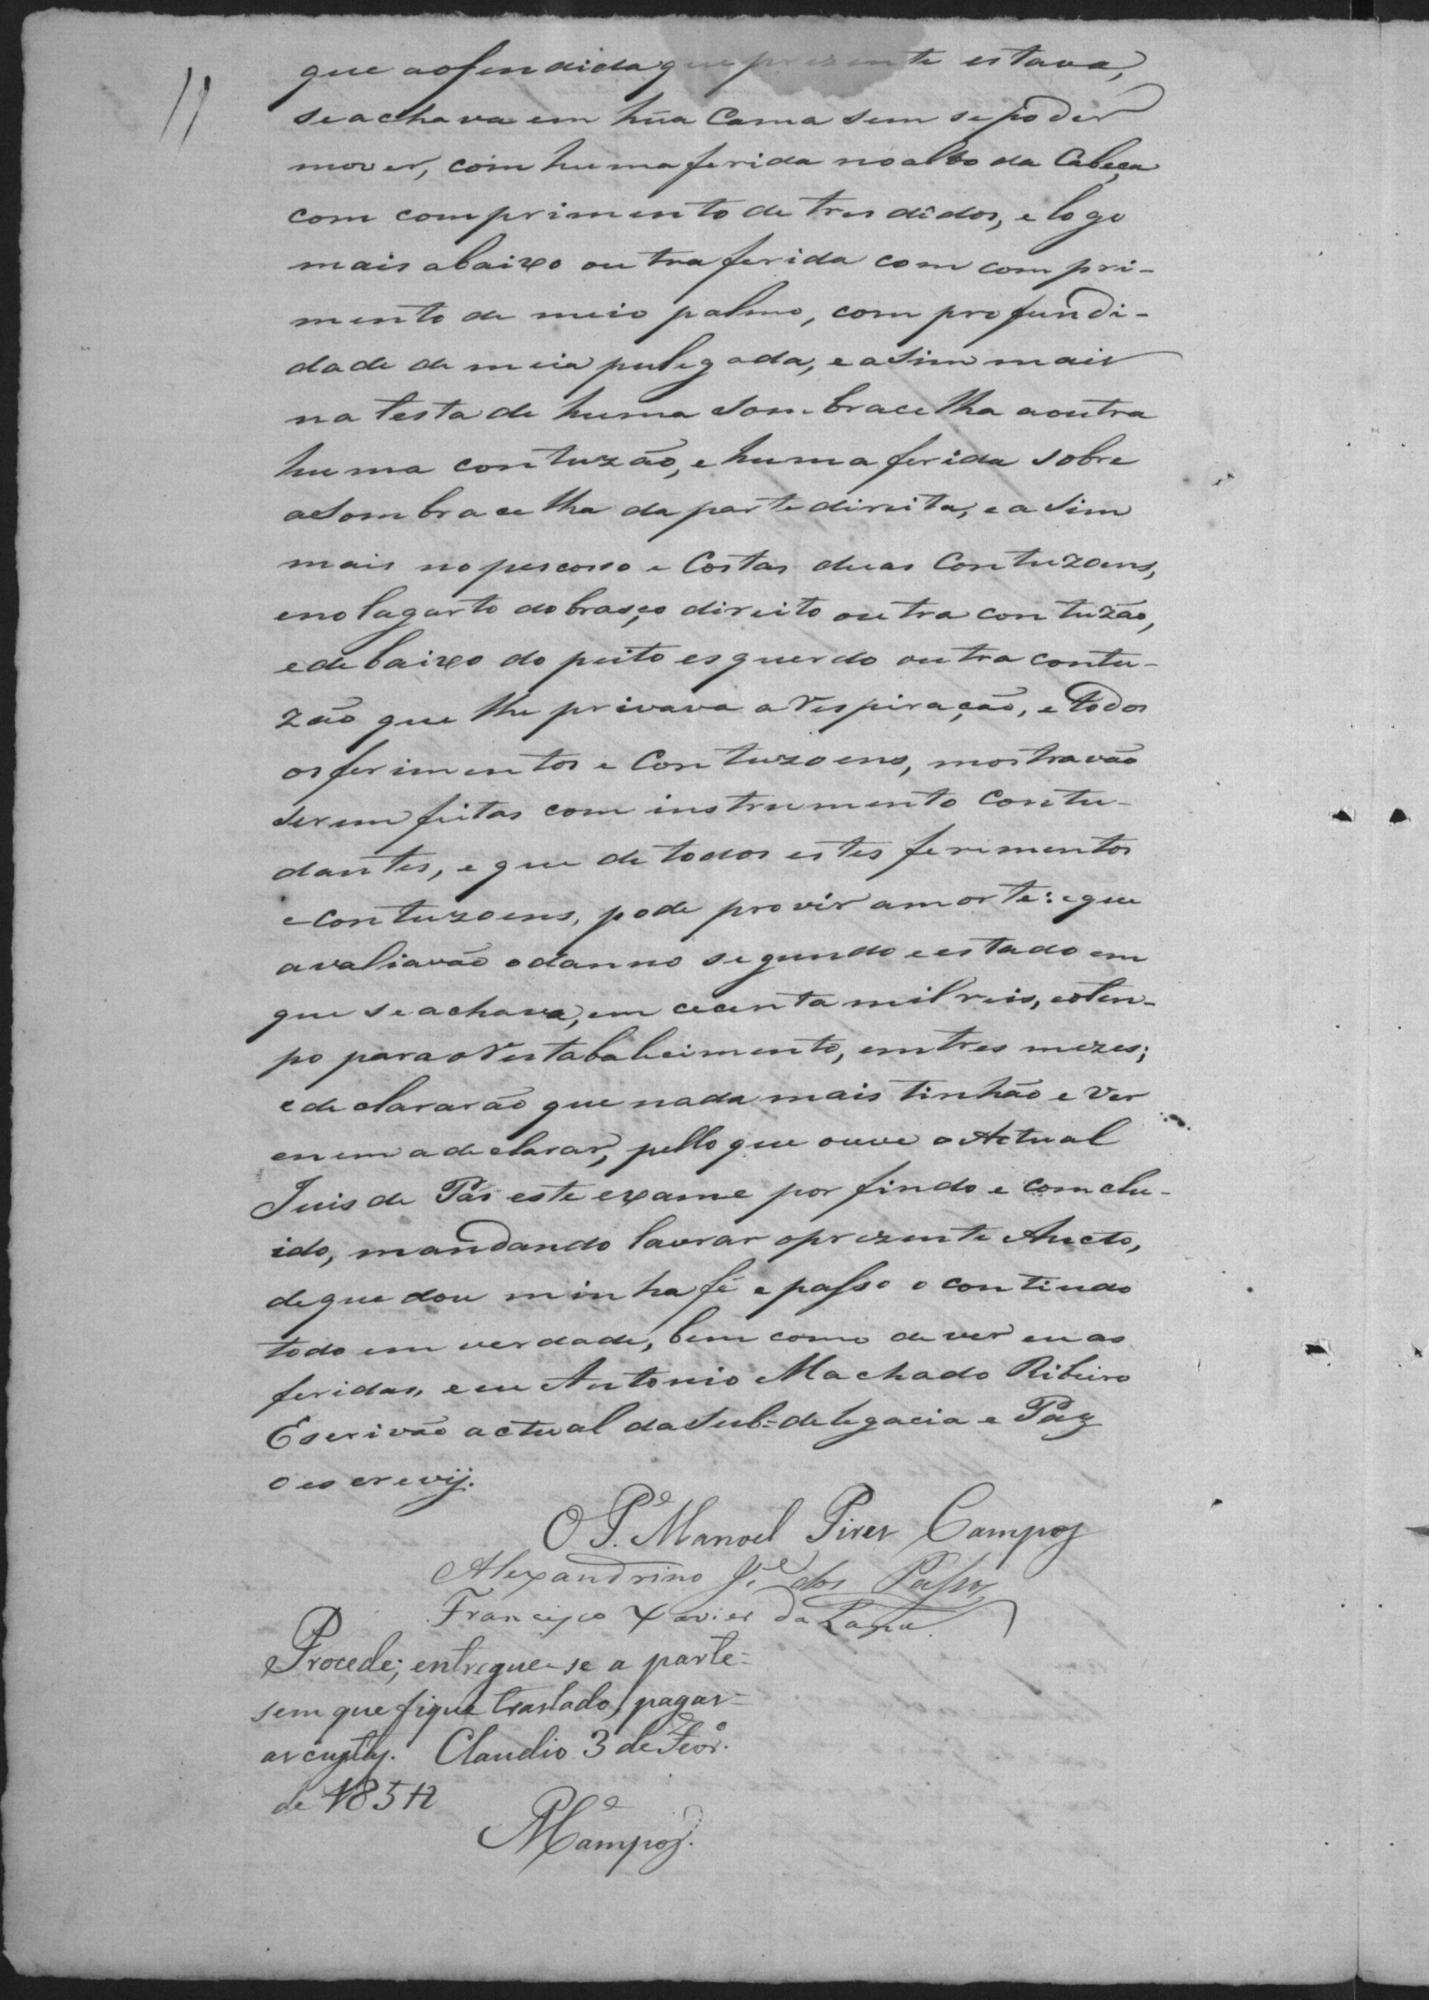 que aofendida que prezente estava,
seachava em hũa Cama sem sepoder
mover, com huma ferida noalto da Cabeça
com comprimento de tres dêdos, e logo
mais abaixo outra ferida com compri-
mento de meio palmo, com profundi-
dade de meia pulegada, e asim mais
na testa de huma Sombracelha aoutra
huma contuzão, e huma ferida sobre
aSombracelha da parte direita, e asim
mais no pescosso e Costas duas Contuzoens,
eno lagarto dobraço direito outra contuzão,
ede baixo do peito esquerdo outra contu-
zão que lhe privava a Respiração, e todos
os ferimentos e Contuzoens, mostravão
Serem feitas com instrumento Contu-
dantes, e que de todos estes ferimentos
e contuzoens, pode provir amorte: e que
avaliavão odanno segundo e estado em
que seachava, em cecenta mil reis, eotem-
po para o Restabaleimento, em tres mezes;
e declararão que nada mais tinhão e ver
enem a declarar, pello que ouve o Actual
Juis de Pás este exame por findo e comclu-
ido, mandando lavrar oprezente Aucto,
de que dou minha fé e passo o contiudo
todo em verdade, bem como de ver eu as
feridas, e eu Antonio Machado Ribeiro
Escrivão actual da Sub-delegacia e Paz
o escrevij.
O P.e Manoel Pires Campos
Alexandrino J.e dos Passos
Francisco Xavier da
Procede; entregue-se a parte
sem que fique traslado, pagas
as custas. Claudio 3 de Fevr.o
de 1852
P.e MCampos.
11